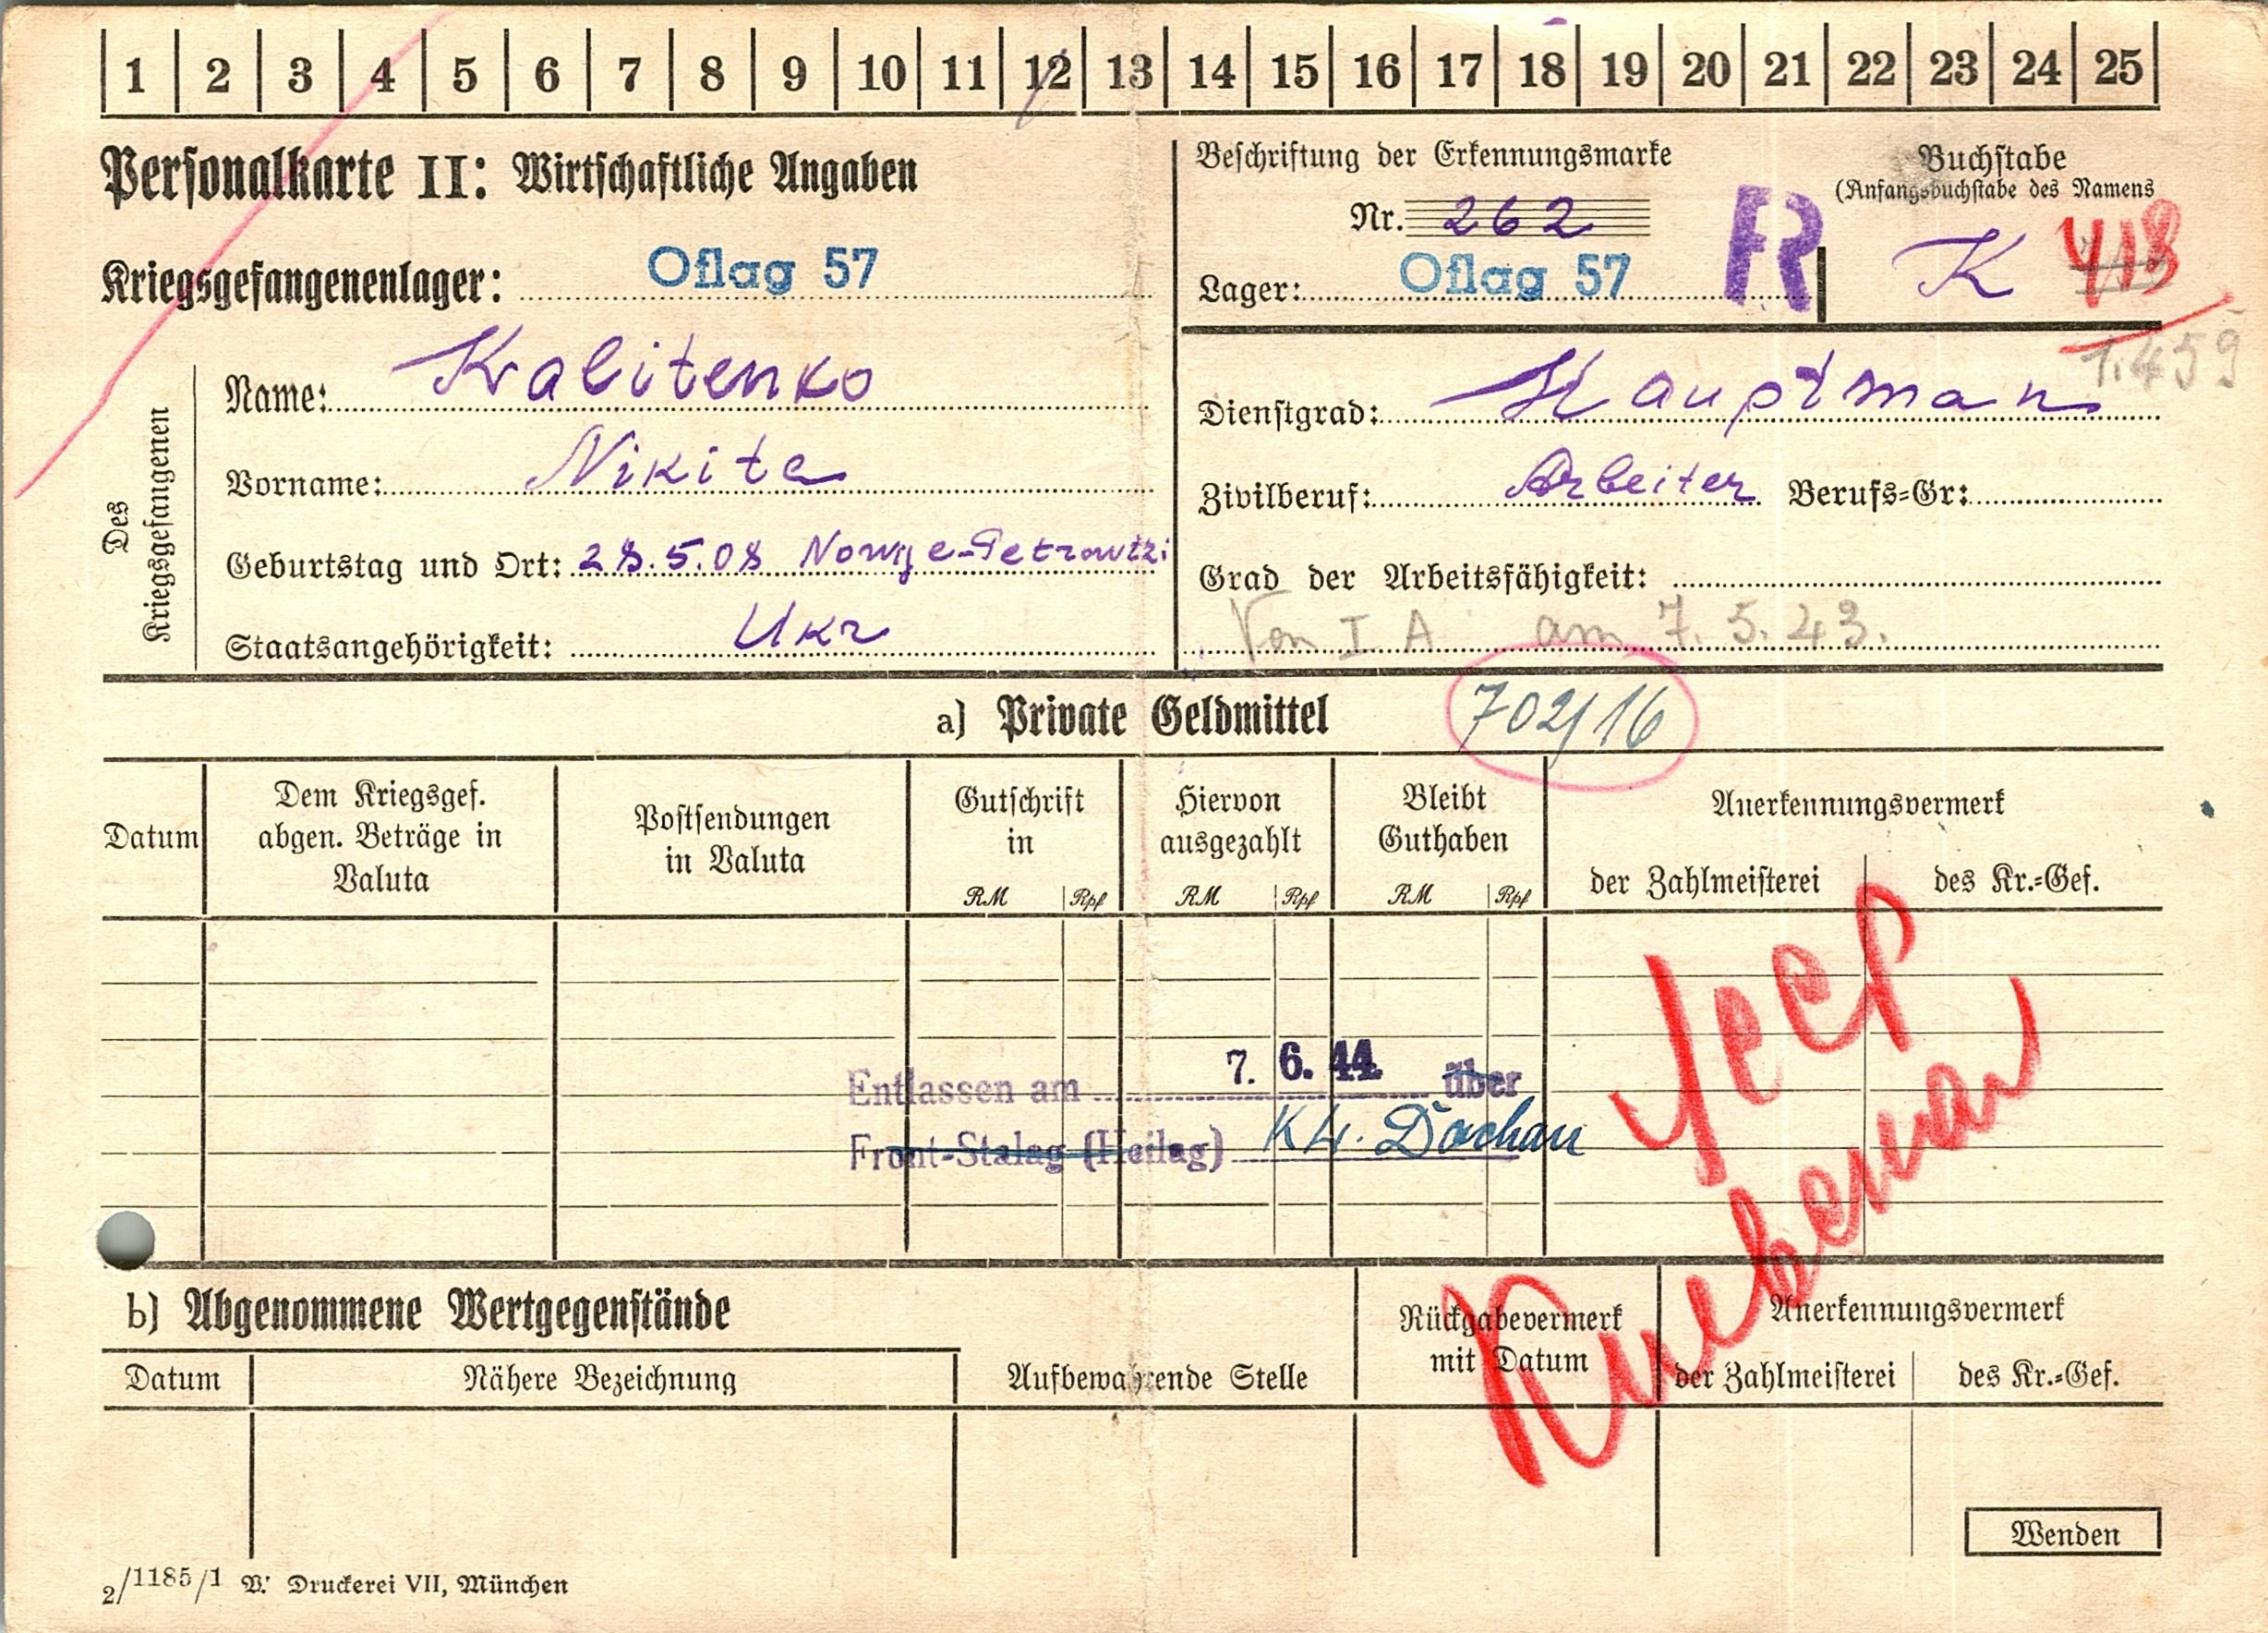 1 2 3 4 5 6 7 8 9 10 11 12 13 14 15 16 17 18 19 20 21 22 23 24 25
Personalkarte II: Wirtschaftliche Angaben
Beschriftung der Erkennungsmarke
Nr. 262
Lager: Oflag 57
FR
Buchstabe
(Anfangsbuchstabe des Namens
K 418
1.459
Kriegsgefangenenlager: Oflag 57
Des
Kriegsgefangenen
Name: Kalitenko
Vorname: Nikita
Geburtstag und Ort: 28.5.08 Nowye-Petrowtzi
Staatsangehörigkeit: Ukr
Dienstgrad: Hauptman
Zivilberuf: Arbeiter Berufs-Gr:
Grad der Arbeitsfähigkeit:
Von I A am 7.5.43.
a) Private Geldmittel 702/16
Datum
Dem Kriegsgef.
abgen. Beträge in
Valuta
Postsendungen
in Valuta
Gutschrift
in
RM Rpf
Hiervon
ausgezahlt
RM Rpf
Bleibt
Guthaben
RM Rpf
Anerkennungsvermerk
der Zahlmeisterei des Kr.-Gef.
Entlassen am 7. 6. 44 über
Front-Stalag (Heilag) KL. Dachau
b) Abgenommene Wertgegenstände
Datum
Nähere Bezeichnung
Aufbewahrende Stelle
Rückgabevermerk
mit Datum
Anerkennungsvermerk
der Zahlmeisterei des Kr.-Gef.
Wenden
2/1185/1 V. Druckerei VII, München